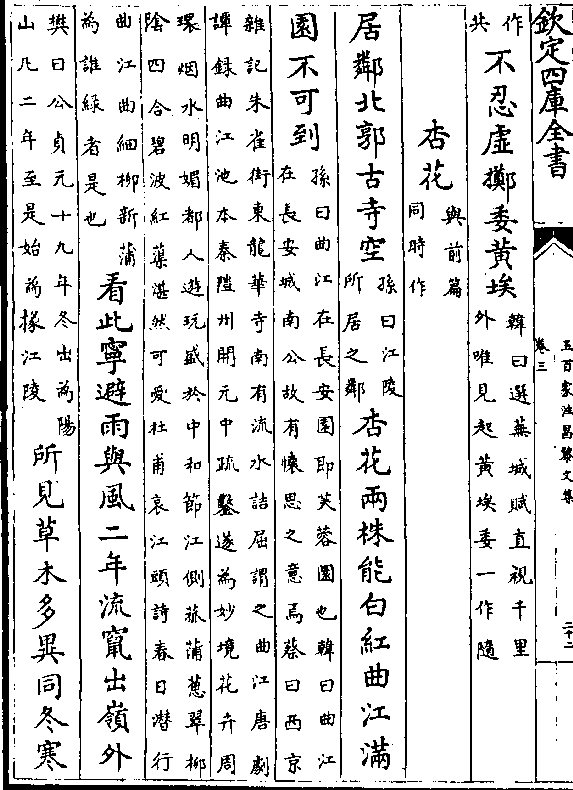 欽定四庫全書
五百家注昌黎文集
卷三
二十二
作
共
不忍虛擲委黃埃
韓曰選蕪城賦直視千里
外唯見起黃埃委一作隨
杏花
與前篇
同時作
居鄰北郭古寺空
孫曰江陵
所居之鄰
杏花兩株能白紅曲江滿
園不可到
孫曰曲江在長安園即芙蓉園也韓曰曲江
在長安城南公故有懷思之意焉蔡曰西京
雜記朱雀街東龍華寺南有流水詰屈謂之曲江唐劇
譚錄曲江池本秦隑州開元中疏鑿遂為妙境花卉周
環烟水明媚都人遊玩盛於中和節江側菰蒲蔥翠柳
陰四合碧波紅蕖湛然可愛杜甫哀江頭詩春日潛行
曲江曲細柳新蒲
為誰緑者是也
看此寧避雨與風二年流竄出嶺外
樊曰公貞元十九年冬出為陽
山凡二年至是始為掾江陵
所見草木多異同冬寒